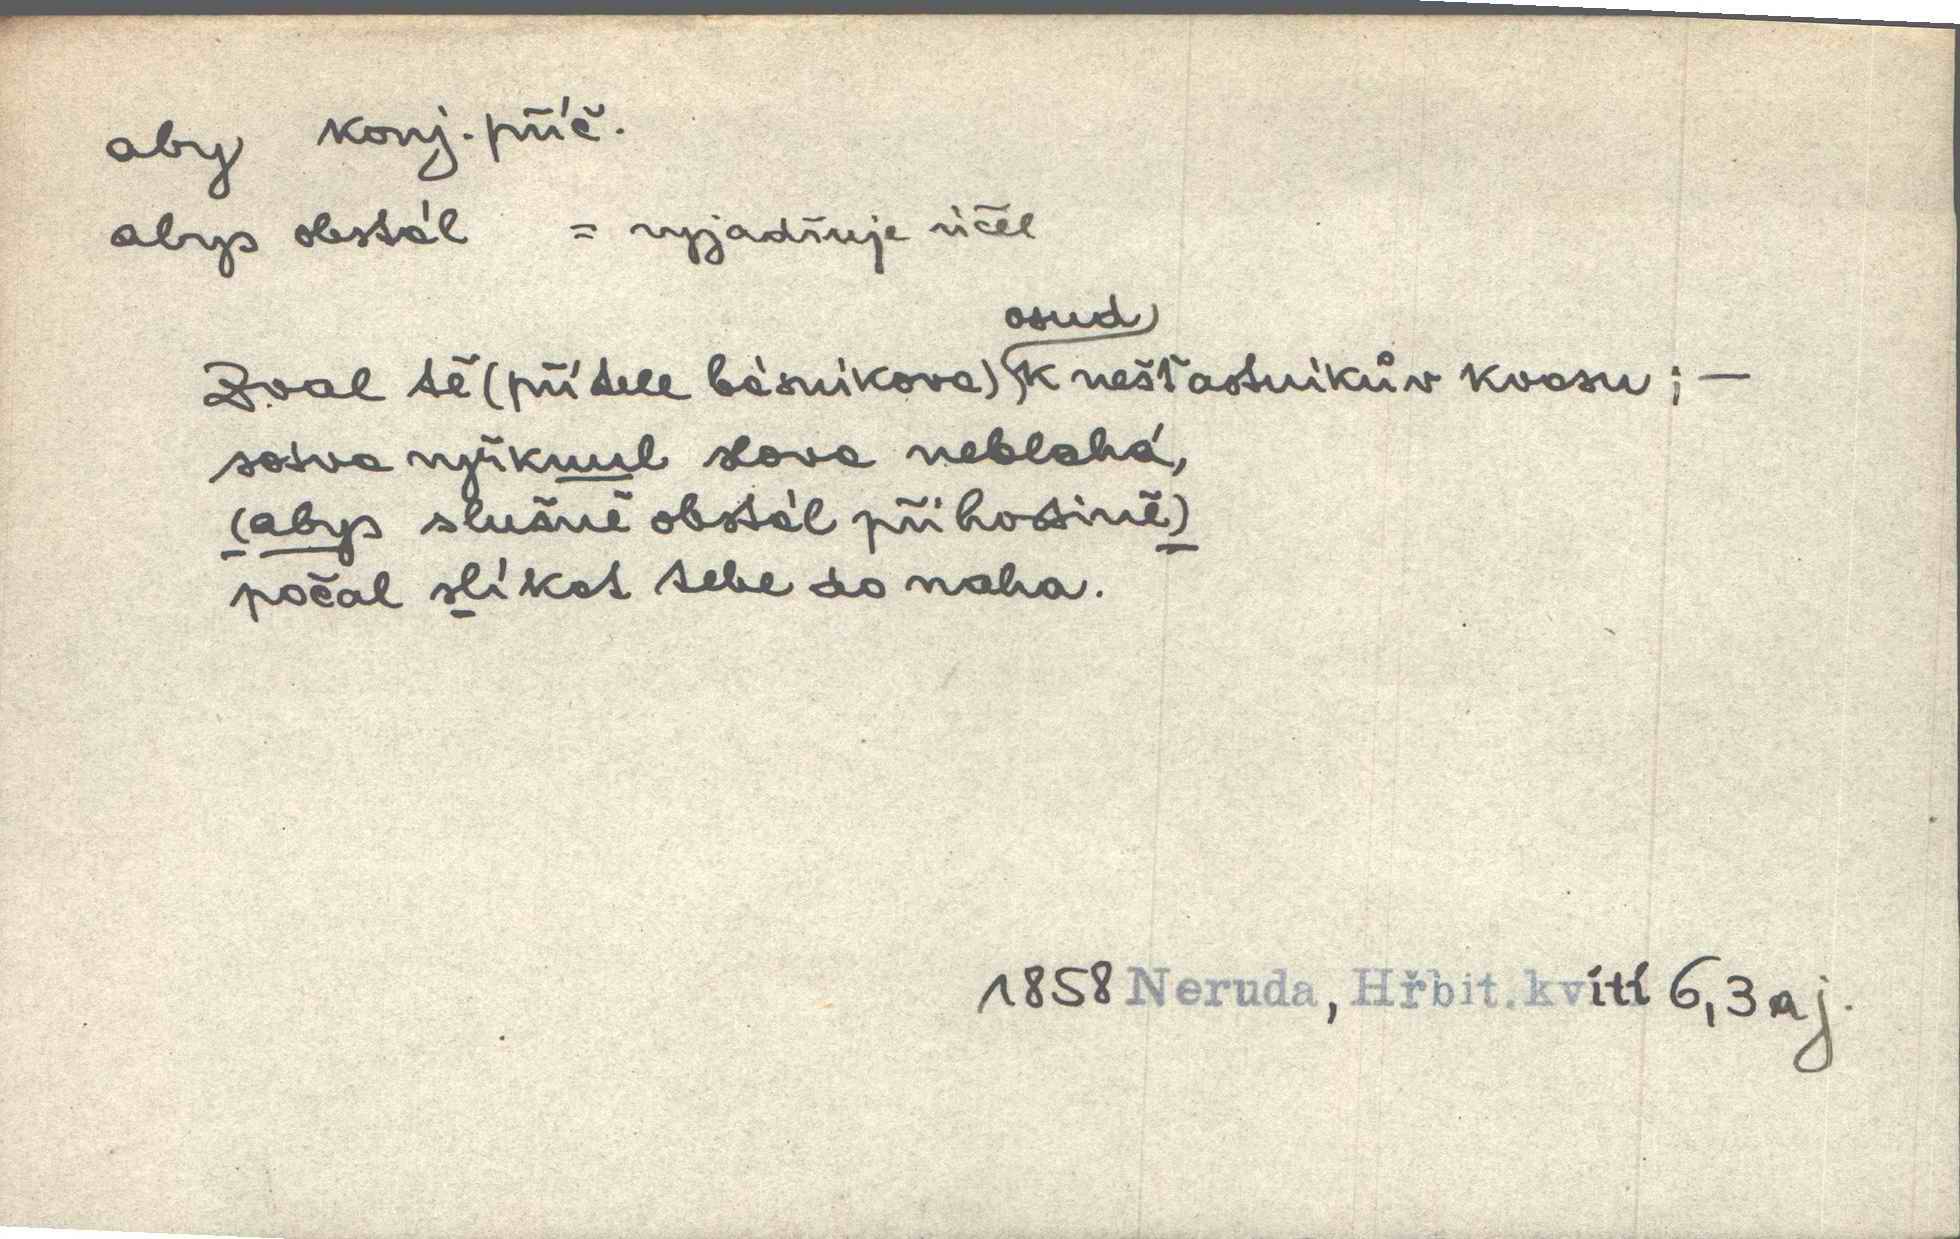 aby konj. příč.
abys obstál = vyjadřuje účel
osud
Zval tě (přítele básníkova) k nešťastníkův kvasu; —
sotva vyřiknul slova neblahá,
(abys slušně obstál při hostině)
počal slíkat tebe do naha.
1858 Neruda, Hřbit. kvítí 6,3 aj.